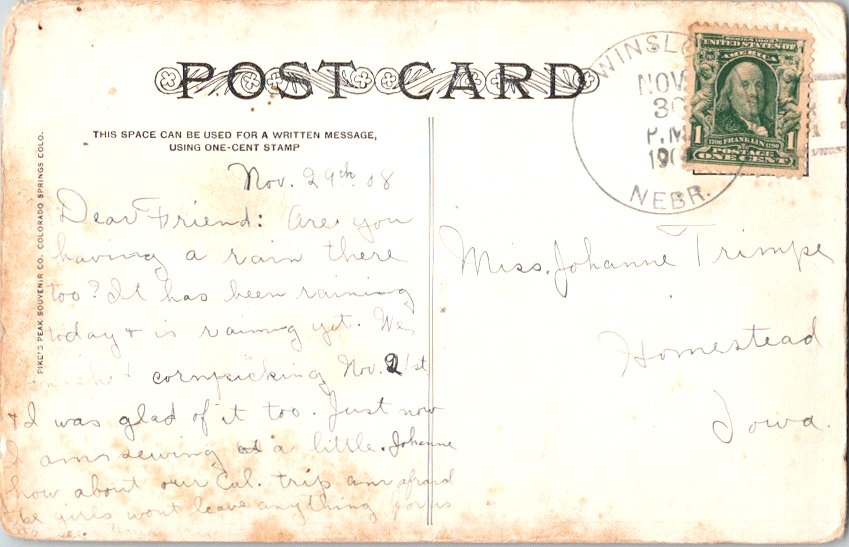 POST CARD
THIS SPACE CAN BE USED FOR A WRITTEN MESSAGE,
USING ONE-CENT STAMP
PIKE'S PEAK SOUVENIR CO. COLORADO SPRINGS COLO.
WINSLO
NOV.
30
P.M
190
NEBR.
SERIES 1902
UNITED STATES OF
AMERICA
1 1
1706 FRANKLIN 1790
POSTAGE
ONE CENT
Nov. 29th. 08
Dear Friend: Are you
having a rain there
too? It has been raining
today & is raining yet. We
cornpicking Nov. 21st
& I was glad of it too. Just now
I am sewing a little. Johanne
how about our Cal. trip am afraid
girls wont leave anything
Miss. Johanne Trimpe
Homestead
Iowa.